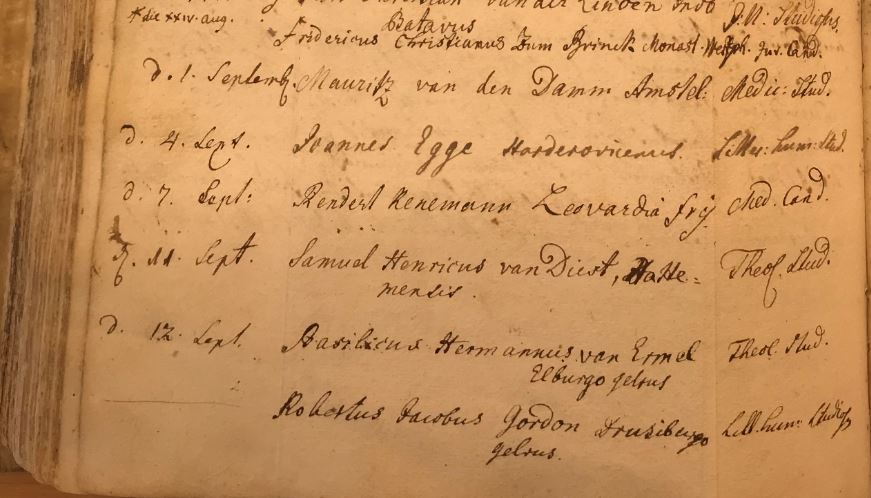 Christian van der Linden J.U. Studiosus.
Batavus
die xxiv. aug. Fridericus Christianus Zum Brinck Monast. Westph. Jur. Cand.
d. 1. Septemb. Mauritz van den Damm Amstel: Medic: Stud.
d. 4. Sept. Joannes Egge Harderovicenus. Litter: hum: Stud.
d. 7. Sept: Rendert Kenemann Leovardia frij Med. Cand.
d. 11 Sept. Samuel Henricus van Diest, Hatte= Theol. Stud:
mensis.
d. 12 Sept. Basilicus Hermannus van Ermel Theol. Stud.
Elburgo gelrus
Robertus Jacobus Gordon Drusiburgo Litt. hum: Studios
gelrus.